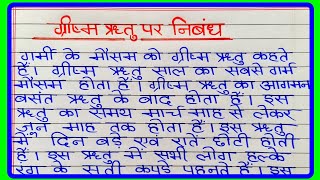 ग्रीष्म ऋतु पर निबंध
गर्मी के मौसम को ग्रीष्म ऋतु कहते
हैं। ग्रीष्म ऋतु साल का सबसे गर्म
मौसम होता है। ग्रीष्म ऋतु का आगमन
बसंत ऋतु के बाद होता है। इस
ऋतु का समय मार्च माह से लेकर
जून माह तक होता है। इस ऋतु
में दिन बड़े एवं रातें छोटी होती
हैं। इस ऋतु में सभी लोग हल्के
रंग के सूती कपड़े पहनते हैं। इस